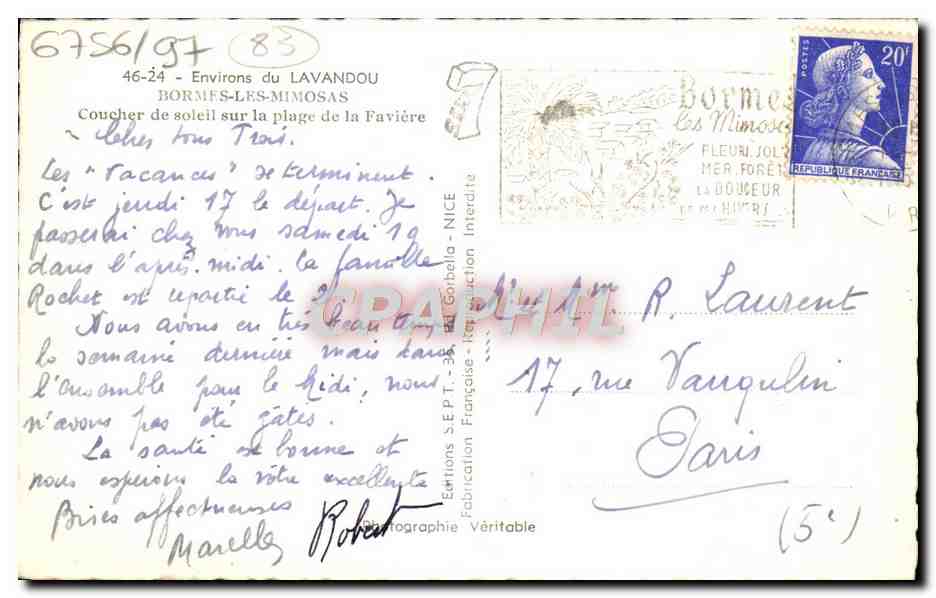 6756/97 (83)
46-24 - Environs du LAVANDOU
BORMES-LES-MIMOSAS
Coucher de soleil sur la plage de la Favière
Chers tous Trois.
Les "Vacances" se terminent.
C'est jeudi 17 le départ. Je
passerai chez vous samedi 19
dans l'après-midi. La famille
Rochet est repartie le
Nous avons eu très beau temps
la semaine dernière mais dans
l'ensemble pour le Midi, nous
n'avons pas été gâtés.
La santé est bonne et
nous espérons la vôtre excellente
Bises affectueuses
Robert
Editions S.E.P.T. - Gorbella - NICE
Fabrication Française - Reproduction Interdite
Photographie Véritable
CPAPHIL
Bormes
les Mimosas
FLEURI, JOLI
MER, FORÊT
LA DOUCEUR
POSTES
20F
REPUBLIQUE FRANÇAISE
R. Laurent
17, rue Vauquelin
Paris
(5e)